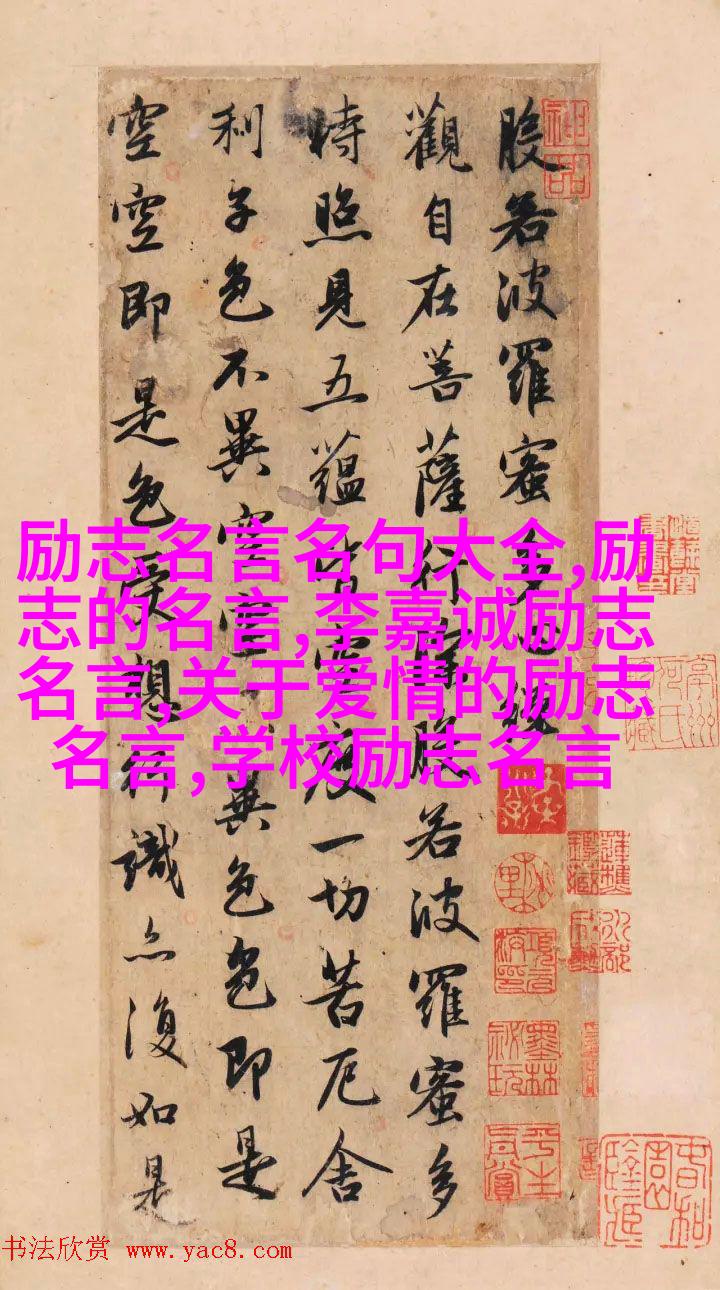 般若波羅蜜多心經
觀自在菩薩行深般若波羅蜜多
時照見五蘊皆空度一切苦厄舍
利子色不異空空不異色色即是
空空即是色受想行識亦復如是
励志名言名句大全,励
志的名言,李嘉诚励志
名言,关于爱情的励志
名言,学校励志名言
神品
书法欣赏 www.yac8.com